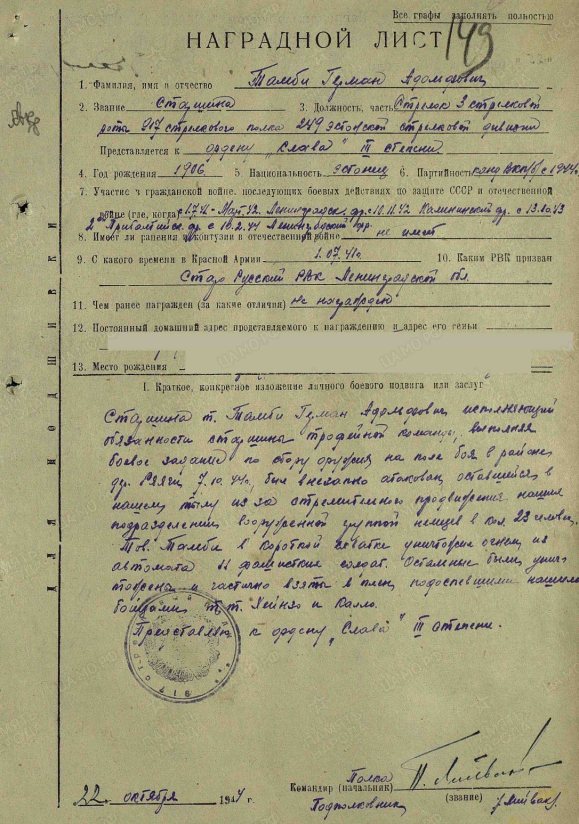 Все графы заполнять полностью
НАГРАДНОЙ ЛИСТ 149
1. Фамилия, имя и отчество Тамби Гуман Адольфович
2. Звание Старшина 3. Должность, часть Стрелок 3 стрелковой
роты 917 стрелкового полка 249 эстонской стрелковой дивизии
Представляется к ордену „Слава" III степени
4. Год рождения 1906 5. Национальность эстонец 6. Партийность канд. ВКП(б) с 1944г.
7. Участие в гражданской войне, последующих боевых действиях по защите СССР и отечественной
войне (где, когда) Март 42 Ленинградск. фр. с 10.11.42 Калининский фр. с 13.10.43
2 Прибалтийск. фр с 10.2.44 Ленинградский фр.
8. Имеет ли ранения и контузии в отечественной войне не имеет
9. С какого времени в Красной Армии 1.07.41г. 10. Каким РВК призван
Старо Русский РВК Ленинградской обл.
11. Чем ранее награжден (за какие отличия) не награжден
12. Постоянный домашний адрес представляемого к награждению и адрес его семьи
13. Место рождения
I. Краткое, конкретное изложение личного боевого подвига или заслуг
Старшина т. Тамби Гуман Адольфович исполняющий
обязанности старшины трофейной команды, выполняя
боевое задание по сбору оружия на поле боя в районе
дер. 7.10.44г. был внезапно атакован оставшейся в
нашем тылу из за стремительного продвижения наших
подразделений вооруженной группой немцев в кол. 23 человек.
Тов. Тамби в короткой схватке уничтожил огнем из
автомата 11 фашистских солдат. Остальные были унич-
тожены и частично взяты в плен подоспевшими нашими
бойцами т.т. и Калло.
Представляю к ордену „Слава" III степени.
ДЛЯ ПОДШИВКИ
Полка
Командир (начальник)
22 октября 1944 г.
(звание)
Подполковник